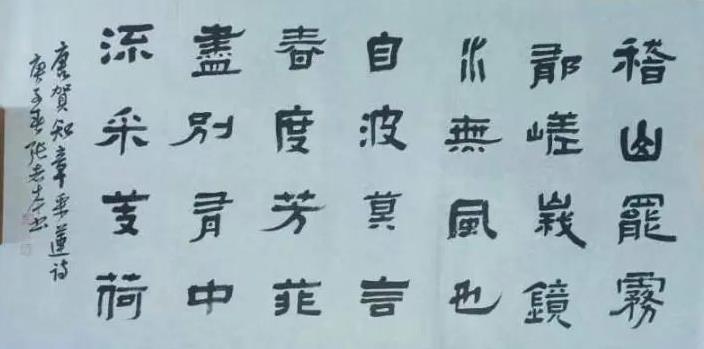 稽山罷霧
郁嵯峨鏡
水無風也
自波莫言
春度芳菲
盡別有中
流采芰荷
唐賀知章采蓮诗
庚子春张书